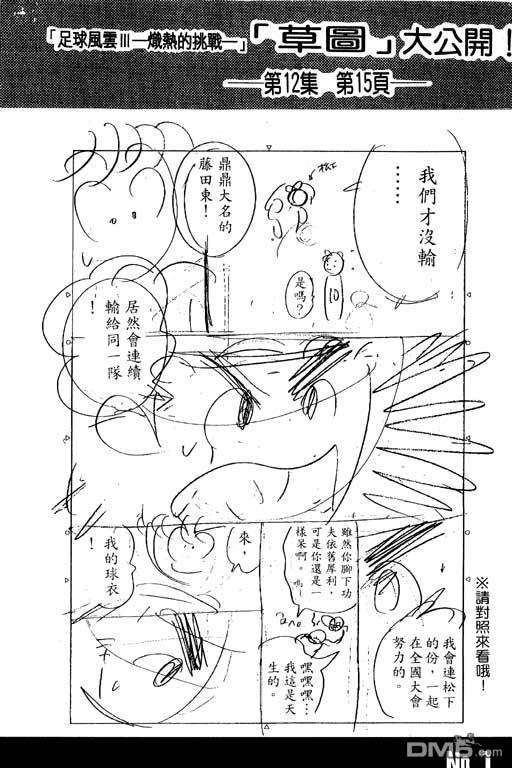 「足球風雲Ⅲ—熾熱的挑戰—」「草圖」大公開！
—第12集 第15頁—
我們才沒輸
……
松上
是嗎？
10
鼎鼎大名的
藤田東！
居然會連續
輸給同一隊
！
雖然你腳下功
夫依舊犀利，
可是你還是一
樣呆啊。
來，
我的球衣
！
我會連松下
的份，一起
在全國大會
努力的。
嘿嘿嘿…
我這是天
生的。
※請對照來看哦！
No.1
DM5.com